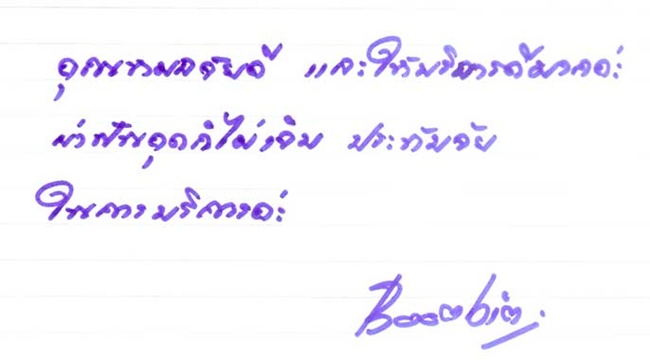 คุณหมอใจดี และให้บริการดีมากค่ะ
ผ่าฟันคุดก็ไม่เจ็บ ประทับใจ
ในการบริการค่ะ
Boombim.